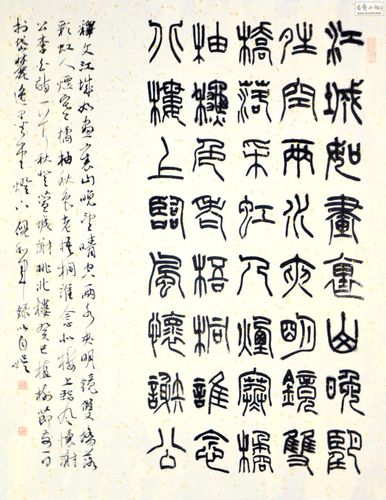 江城如畫裏山晚望
晴空兩水夾明鏡雙
橋落采虹人煙寒橘
柚秋色老梧桐誰念
北樓上臨風懷謝公
釋文江城如畫裏山晚望晴空兩水夾明鏡雙橋落
彩虹人煙寒橘柚秋色老梧桐誰念北樓上臨風懷謝
公李白詩一首秋登宣城謝朓北樓癸巳植樹節前一日
於岱麓逸墨堂燈下錄以自娛